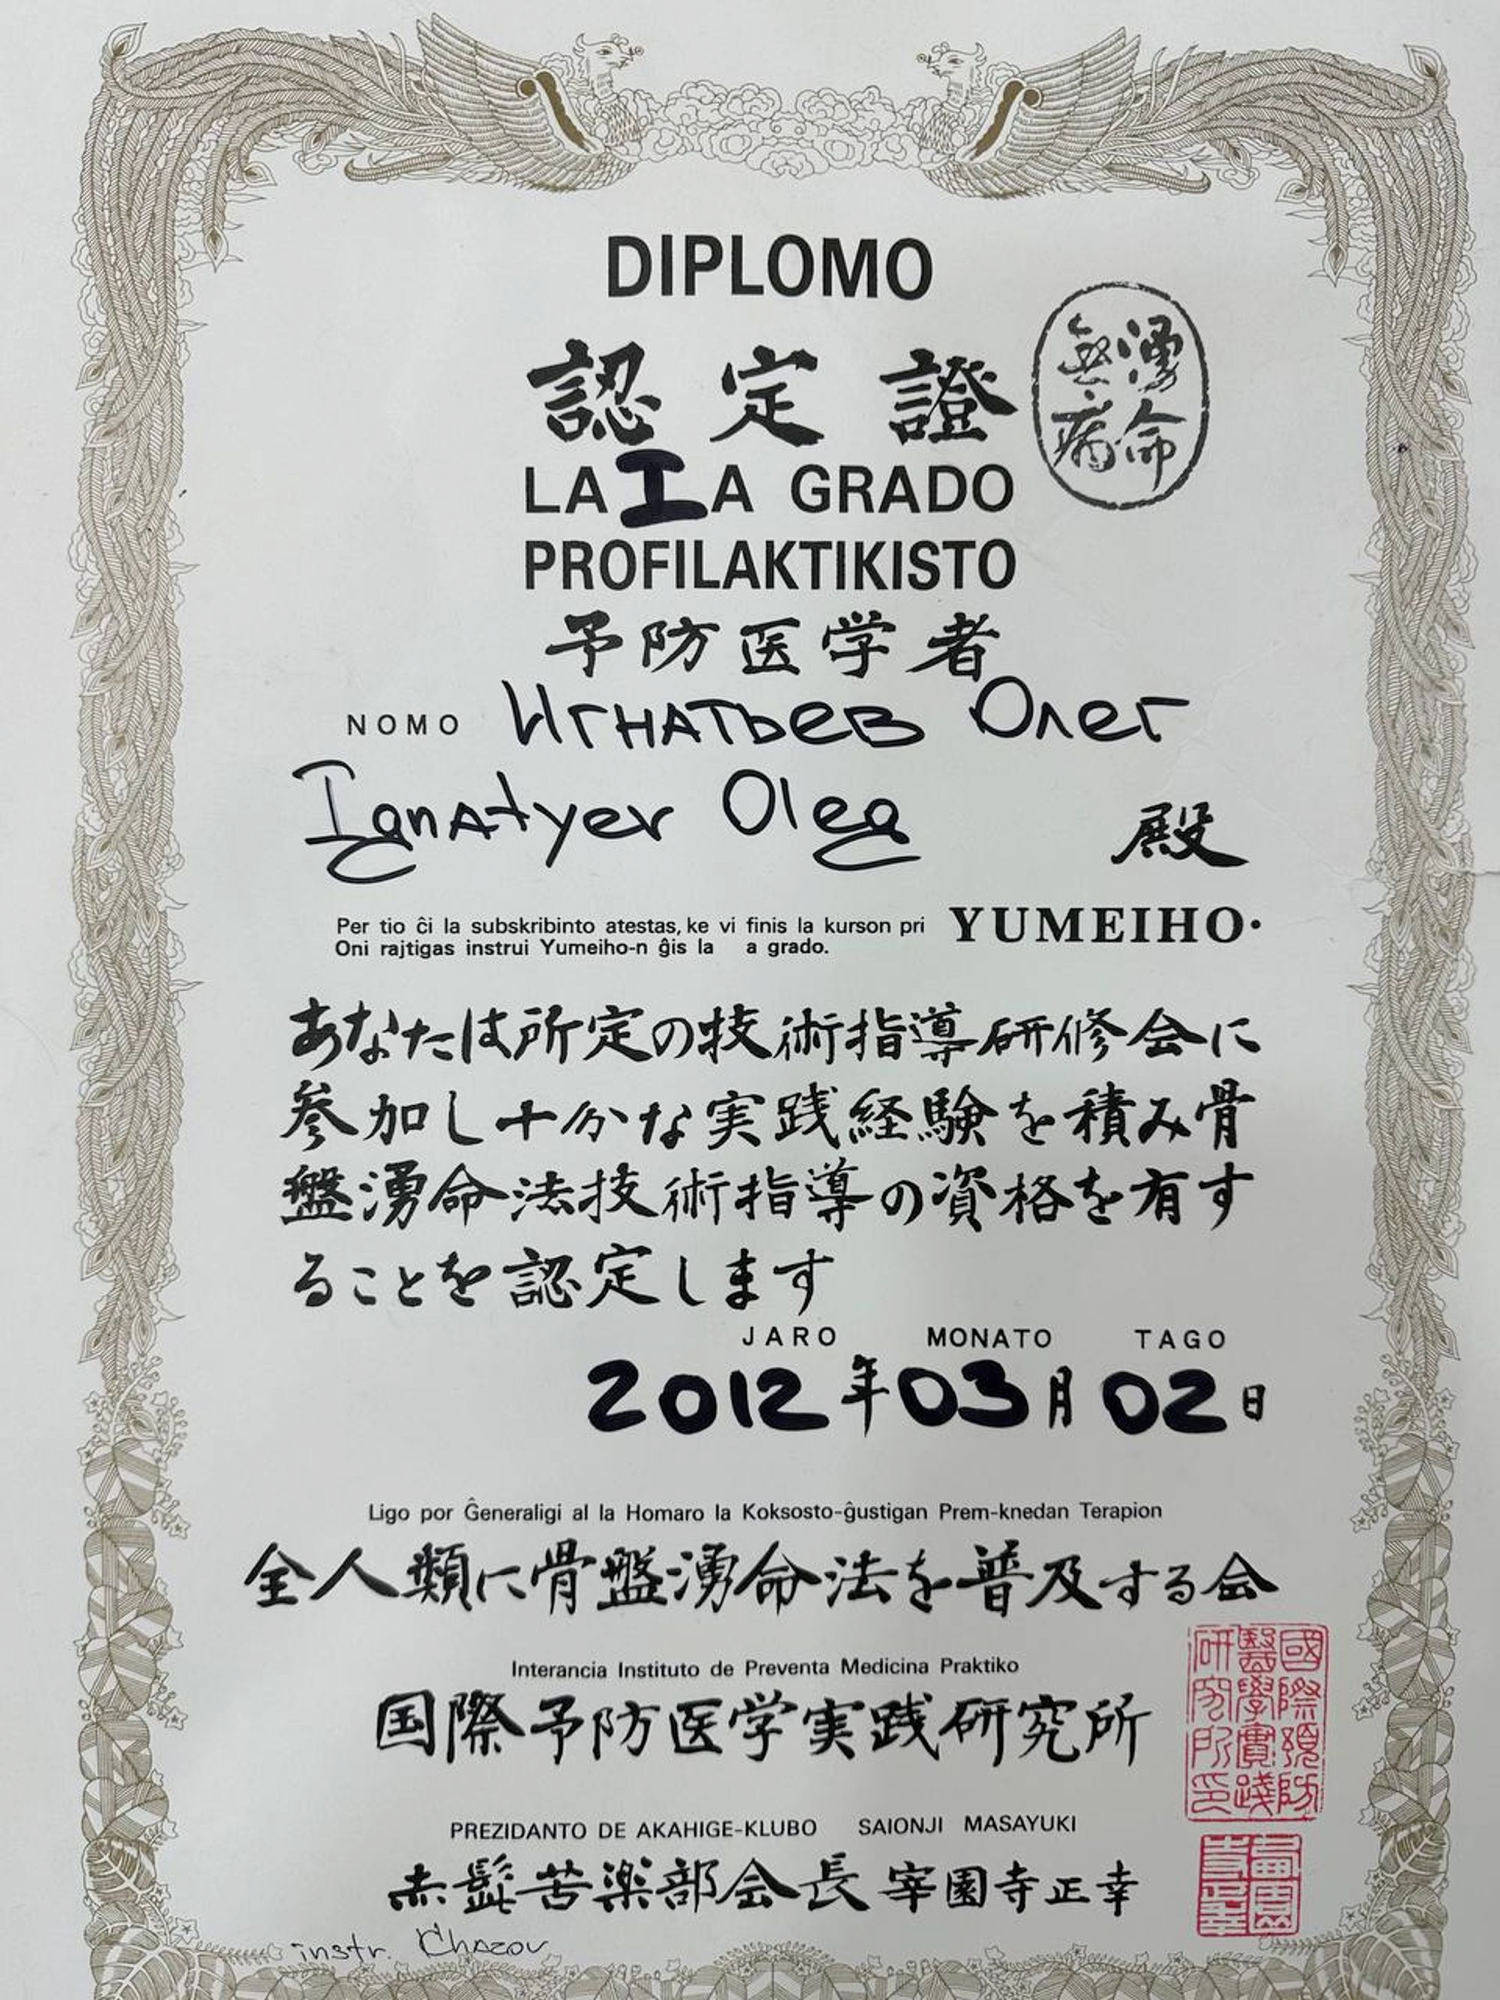 DIPLOMO
認定證
湧命
無病
LA I A GRADO
PROFILAKTIKISTO
予防医学者
NOMO Игнатьев Олег
Ignatyev Oleg 殿
Per tio ĉi la subskribinto atestas, ke vi finis la kurson pri YUMEIHO.
Oni rajtigas instrui Yumeiho-n ĝis la a grado.
あなたは所定の技術指導研修会に
参加し十分な実践経験を積み骨
盤湧命法技術指導の資格を有す
ることを認定します
JARO MONATO TAGO
2012年03月02日
Ligo por Ĝeneraligi al la Homaro la Koksosto-ĝustigan Prem-knedan Terapion
全人類に骨盤湧命法を普及する会
Interancia Instituto de Preventa Medicina Praktiko
国際予防医学実践研究所
國際預防
醫學實踐
研究所印
PREZIDANTO DE AKAHIGE-KLUBO SAIONJI MASAYUKI
赤髭苦楽部会長 宰園寺正幸
宰園
寺正幸
instr. Chazov